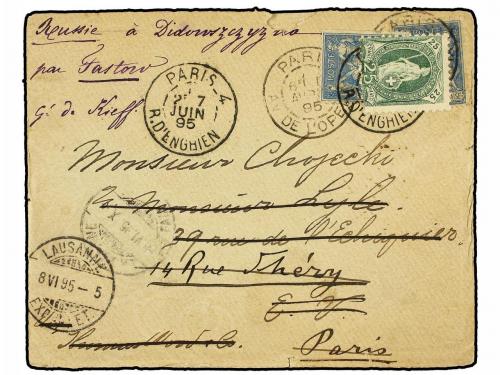 Russie à Didowszczyzna
par Fastow
Gt de Kieff.
PARIS 4
2E 7
JUIN
95
R. D'ENGHIEN
PARIS
95
AV DE L'OPERA
PARIS
R. D'ENGHIEN
25 25
25
Monsieur Chojecki
Monsieur Lyle
39 rue de l'Echiquier
14 Rue Théry
E. V.
Paris
LAUSANNE
8 VI 95 - 5
EXP. LET.